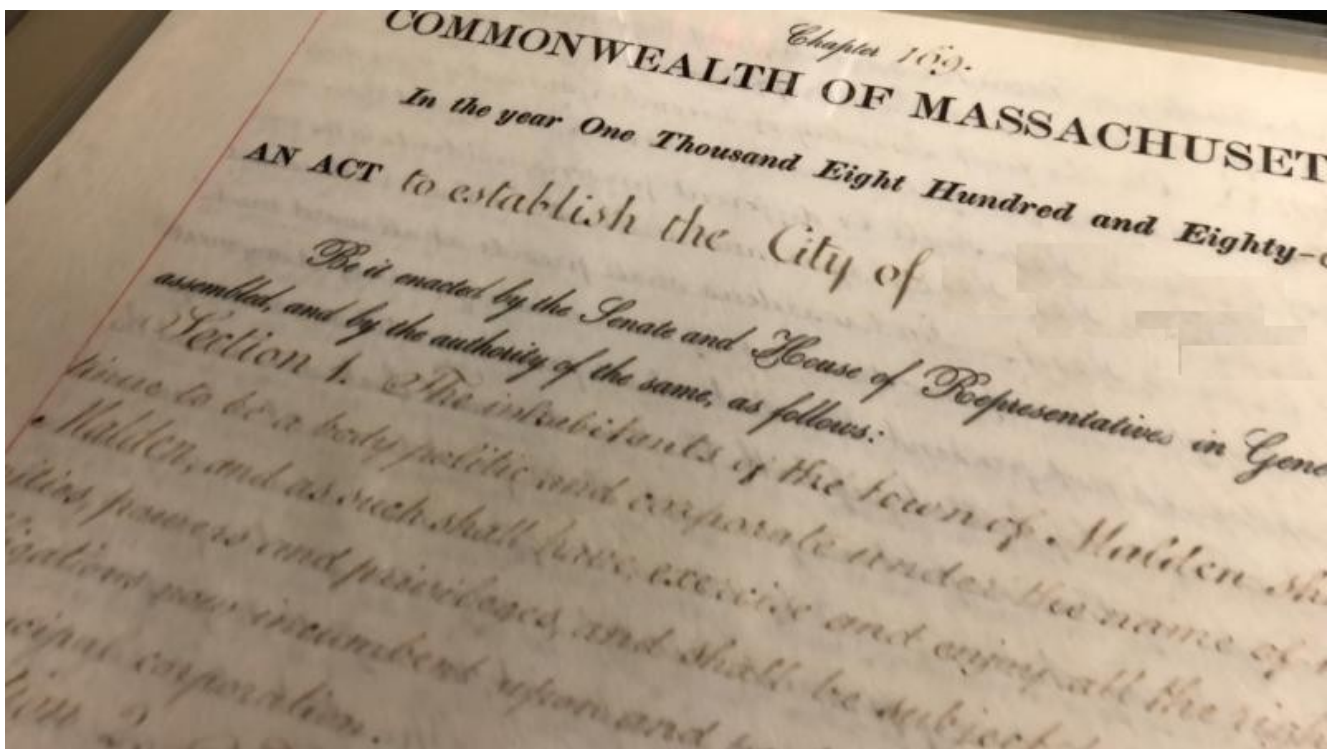 Chapter 169.
COMMONWEALTH OF MASSACHUSET
In the year One Thousand Eight Hundred and Eighty-
AN ACT to establish the City of
Be it enacted by the Senate and House of Representatives in Gene
assembled, and by the authority of the same, as follows:
Section 1. The inhabitants of the town of Malden sha
tinue to be a body politic and corporate under the name of
Malden, and as such shall have, exercise and enjoy all the righ
ities, powers and privileges, and shall be subject
igations now incumbent upon and
icipal corporation.